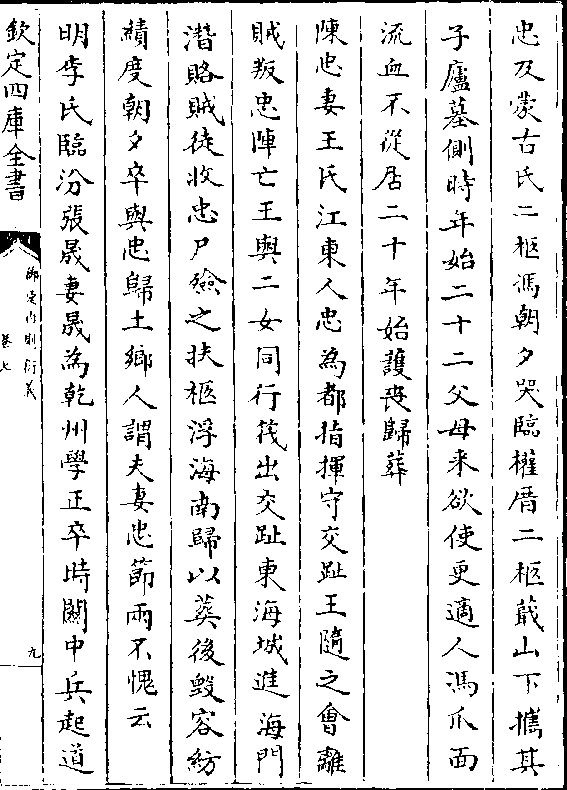 忠及蒙古氏二柩馮朝夕哭臨權厝二柩蕺山下攜其
子廬墓側時年始二十二父母来欲使更適人馮爪面
流血不從居二十年始護喪歸葬
陳忠妻王氏江東人忠為都指揮守交趾王隨之會離
賊叛忠陣亡王與二女同行筏出交趾東海城進海門
潛賂賊徒收忠尸殮之扶柩浮海南歸以葬後毀容紡
績度朝夕卒與忠歸土鄉人謂夫妻忠節兩不愧云
明李氏臨汾張晟妻晟為乾州學正卒時關中兵起道
欽定四庫全書
御定內則衍義
卷七
九